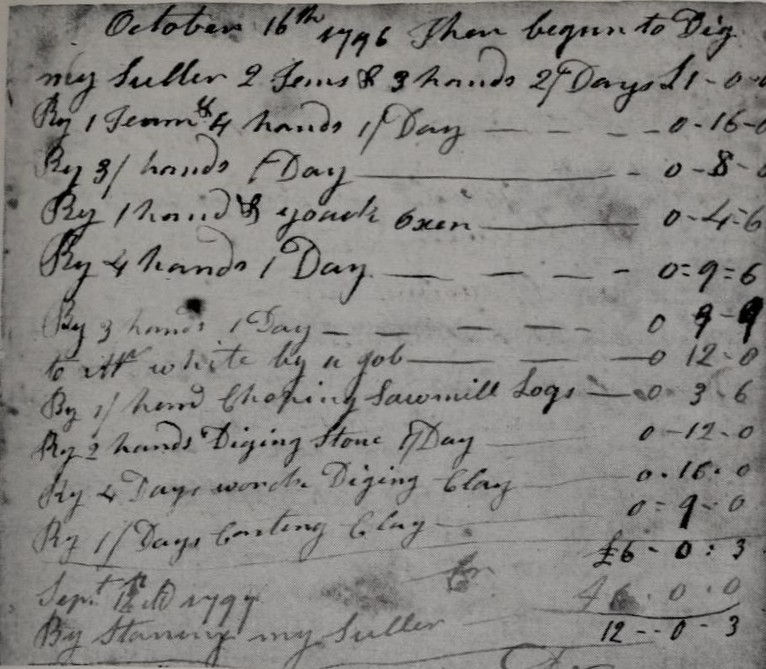 October 16th 1796 Then begun to Dig
my Suller 2 Tems & 3 hands 2/ Days £1-0-0
By 1 Team & 4 hands 1/ Day — — — 0-16-0
By 3/ hands 1/ Day — 0-8-0
By 1 hand & yoack Oxen — 0-4-6
By 4 hands 1 Day — — — - 0=9=6
By 3 hands 1 Day — — — — 0 9-9
to Mr white by a gob — — — 0 12-0
By 1/ hand Choping Sawmill Logs — 0-3-6
By 2 hands Diging Stone 1/ Day — 0-12-0
By 4 Days worck Diging Clay — 0-16-0
By 1/ Days Carting Clay — 0=9-0
£6-0:3
Sept 1797 6.0.0
By Stoning my Suller — 12--0-3